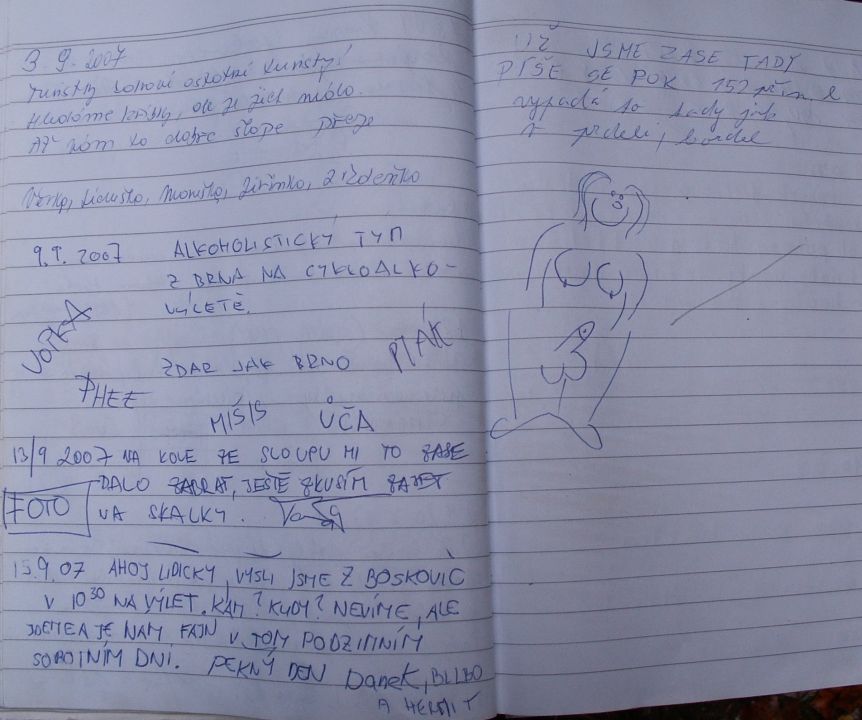 3. 9. 2007
Turisty zdraví ostatní turisty!
Hledáme hřiby, ale je jich málo.
Ať vám to dobře šlape přeje
Věrka, Liduška, Monička, Jiřinka, Zdeňka
9. 9. 2007 ALKOHOLISTICKÝ TÝM
Z BRNA NA CYKLOALKO-
VÝLETĚ.
VOTKA
ZDAR JAK BRNO
PTÁK
PHEE
MIŠIS ÚČA
13/9 2007 NA KOLE ZE SLOUPU MI TO ZASE
DALO ZABRAT, JEŠTĚ ZKUSÍM ZAJET
NA SKALKY.
FOTO
15.9.07 AHOJ LIDIČKY, VYŠLI JSME Z BOSKOVIC
V 10 30 NA VÝLET. KAM? KUDY? NEVÍME, ALE
JDEME A JE NÁM FAJN V TOM PODZIMNÍM
SOBOTNÍM DNI. PĚKNÝ DEN Danek, BILBO
A HERMIT
UŽ JSME ZASE TADY
PÍŠE SE ROK 152 př.n.l
vypadá to tady jak
v prdeli, bordel